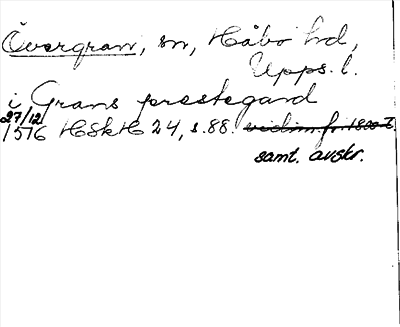 Övergran, sn, Håbo hd,
Upps. l.
i Grans prestegard
27/12
1576 HSkH 24, s. 88. vidim. fr. 1800-t.
samt. avskr.